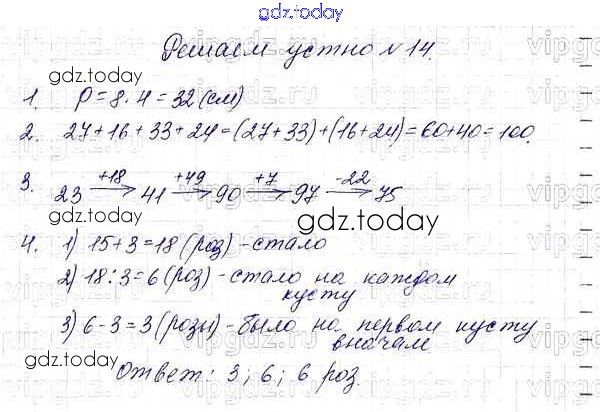 gdz.today
Решаем устно №14.
gdz.today
1. P = 8·4 = 32 (см)
2. 27+16+33+24=(27+33)+(16+24)=60+40=100.
+18 +49 +7 -22
3. 23 → 41 → 90 → 97 → 75
gdz.today
4. 1) 15+3=18 (роз) - стало
gdz.today
2) 18:3=6 (роз) - стало на каждом
кусту
3) 6-3=3 (розы) - было на первом кусту
вначале
gdz.today
Ответ: 3; 6; 6 роз.
gdz.today